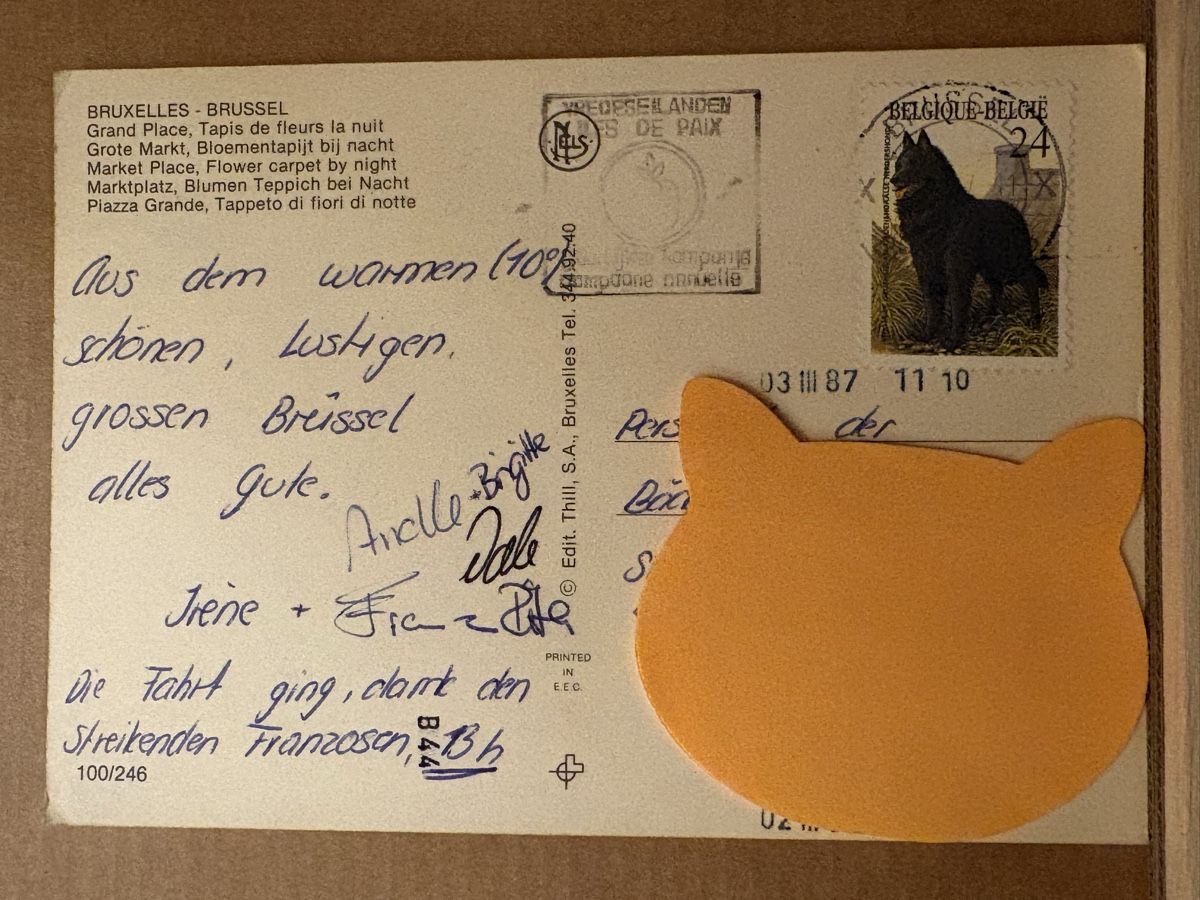 BRUXELLES - BRUSSEL
Grand Place, Tapis de fleurs la nuit
Grote Markt, Bloementapijt bij nacht
Market Place, Flower carpet by night
Marktplatz, Blumen Teppich bei Nacht
Piazza Grande, Tappeto di fiori di notte
Aus dem warmen (10°)
schönen, Lustigen,
grossen Brüssel
alles Gute.
Brigitte
Irène +
Die Fahrt ging, dank den
streikenden Franzosen, 13 h
100/246
B44
NELS
VREDESEILANDEN
ILES DE PAIX
campagne annuelle
© Edit. Thill, S.A., Bruxelles Tel. 344.92.40
PRINTED
IN
E.E.C.
BELGIQUE-BELGIË
24
03 III 87 11 10
der
02